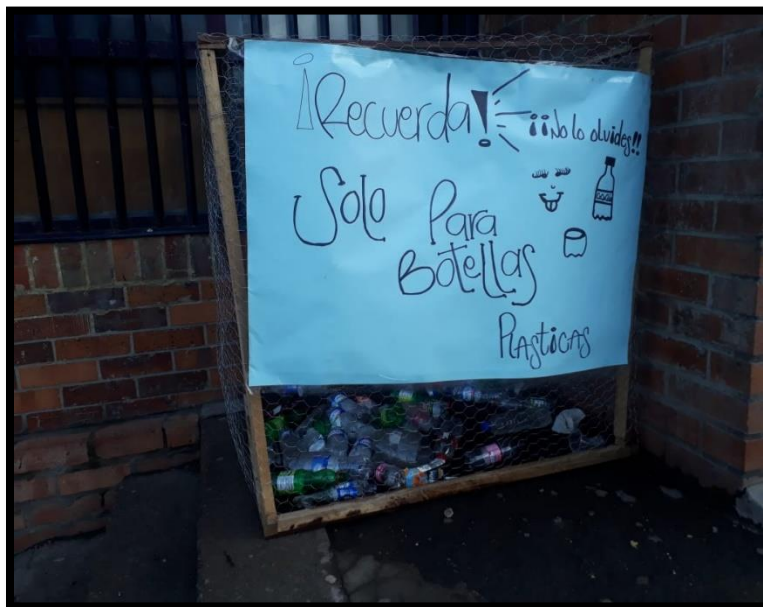 ¡Recuerda!
¡¡No lo olvides!!
Solo Para
Botellas
Plasticas